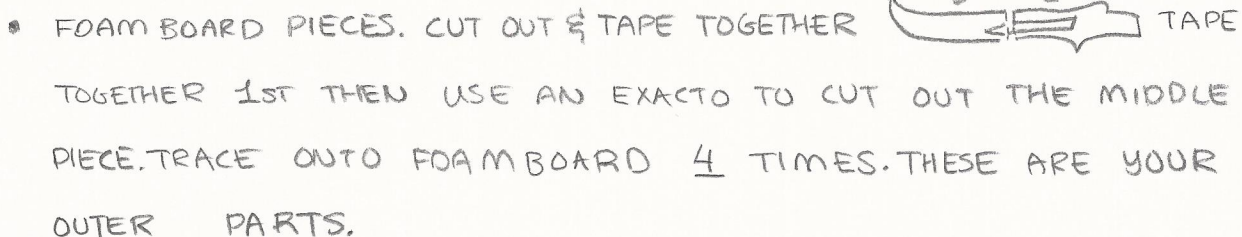 • FOAM BOARD PIECES. CUT OUT & TAPE TOGETHER TAPE
TOGETHER 1ST THEN USE AN EXACTO TO CUT OUT THE MIDDLE
PIECE. TRACE ONTO FOAM BOARD 4 TIMES. THESE ARE YOUR
OUTER PARTS.